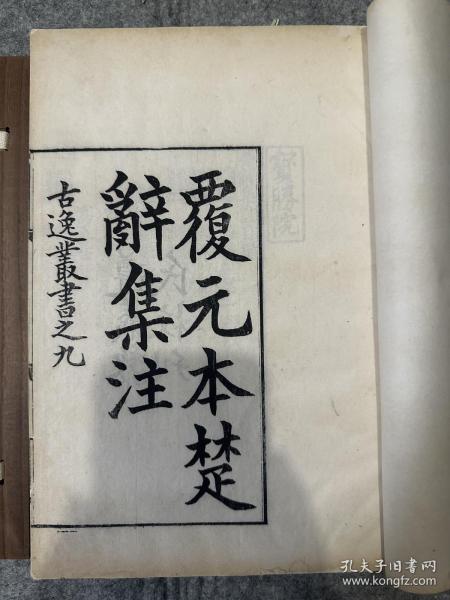 覆元本楚
辭集注
古逸叢書之九
寶勝院
孔夫子旧书网
www.kongfz.com